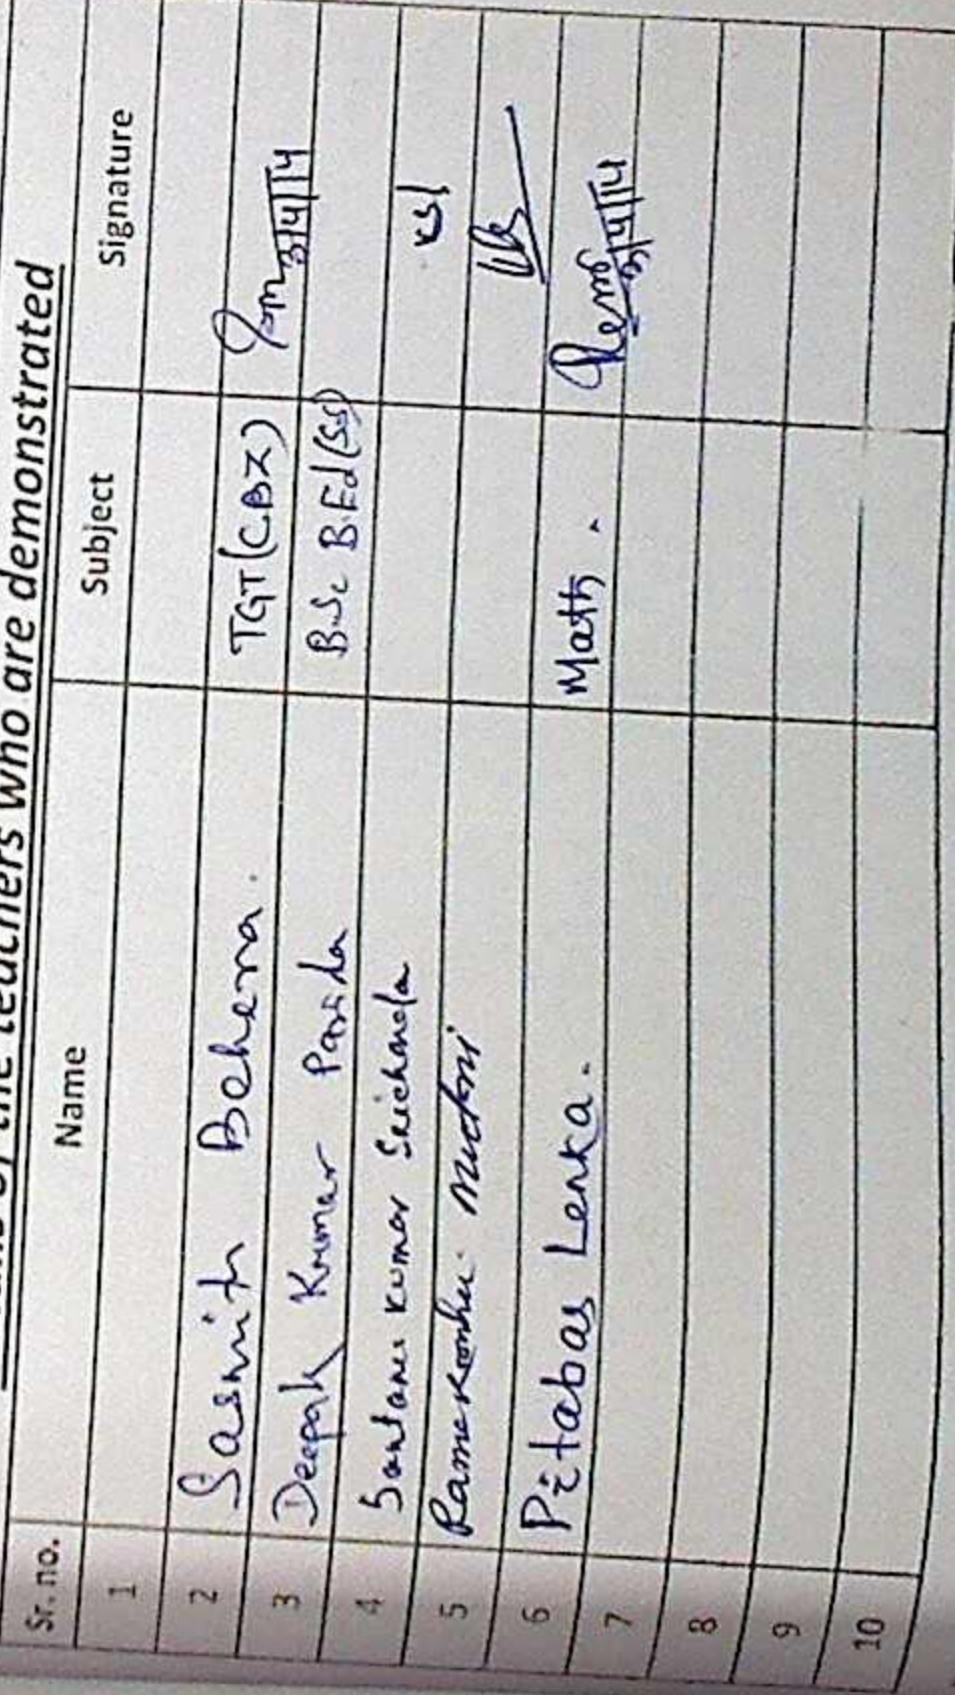 of the teachers who are demonstrated
Sr. no. Name Subject Signature
1
2 Sasmita Behera. TGT(CBZ) 3/4/14
3 Deepak Kumar Parida B.Sc BEd(SS)
4 Santanu Kumar Srichandan
5
6 Pitabas Lenka. Math. 3/4/14
7
8
9
10